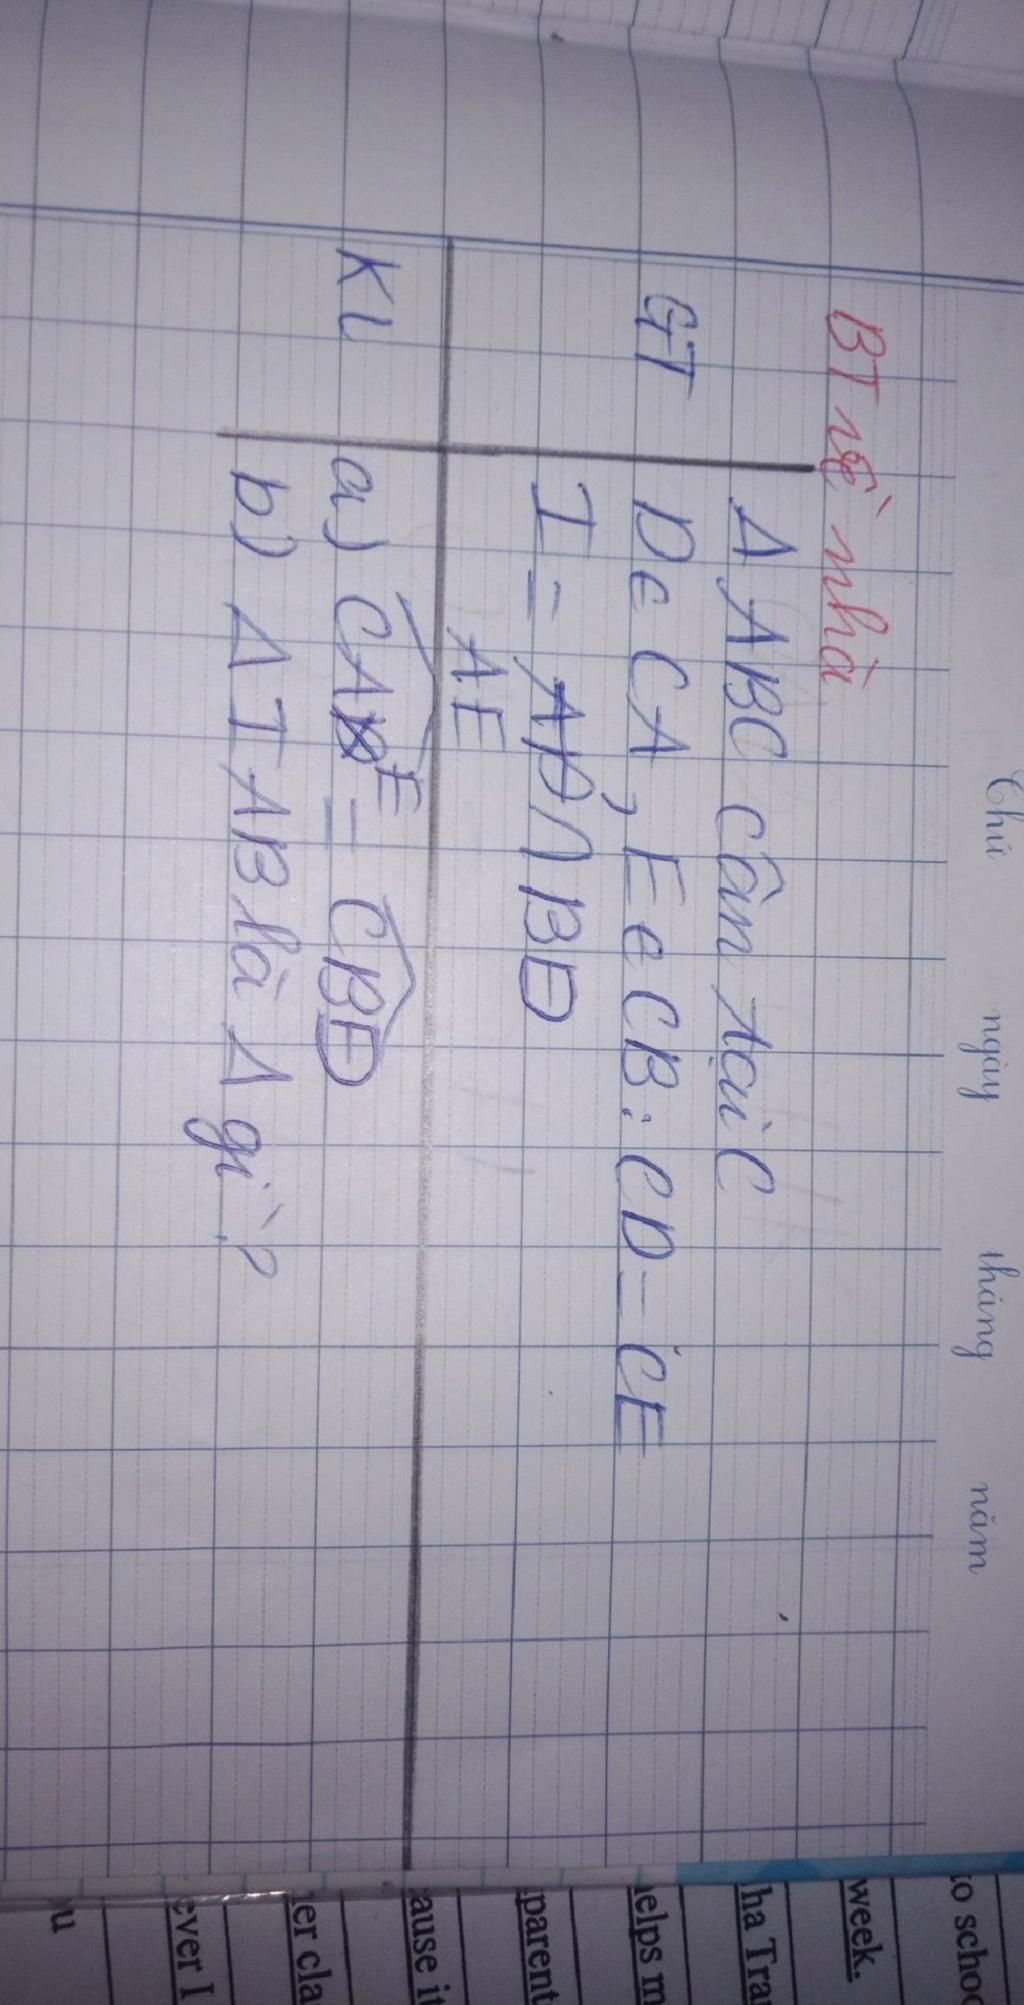 Thứ ngày tháng năm
BT về nhà
Δ ABC cân tại C
GT D ∈ CA, E ∈ CB: CD = CE
I = AD ∩ BD
AE
KL a) CAE = CBD
b) Δ IAB là Δ gì?
to schoo
week.
ha Tra
elps m
parent
ause it
er cla
ever I